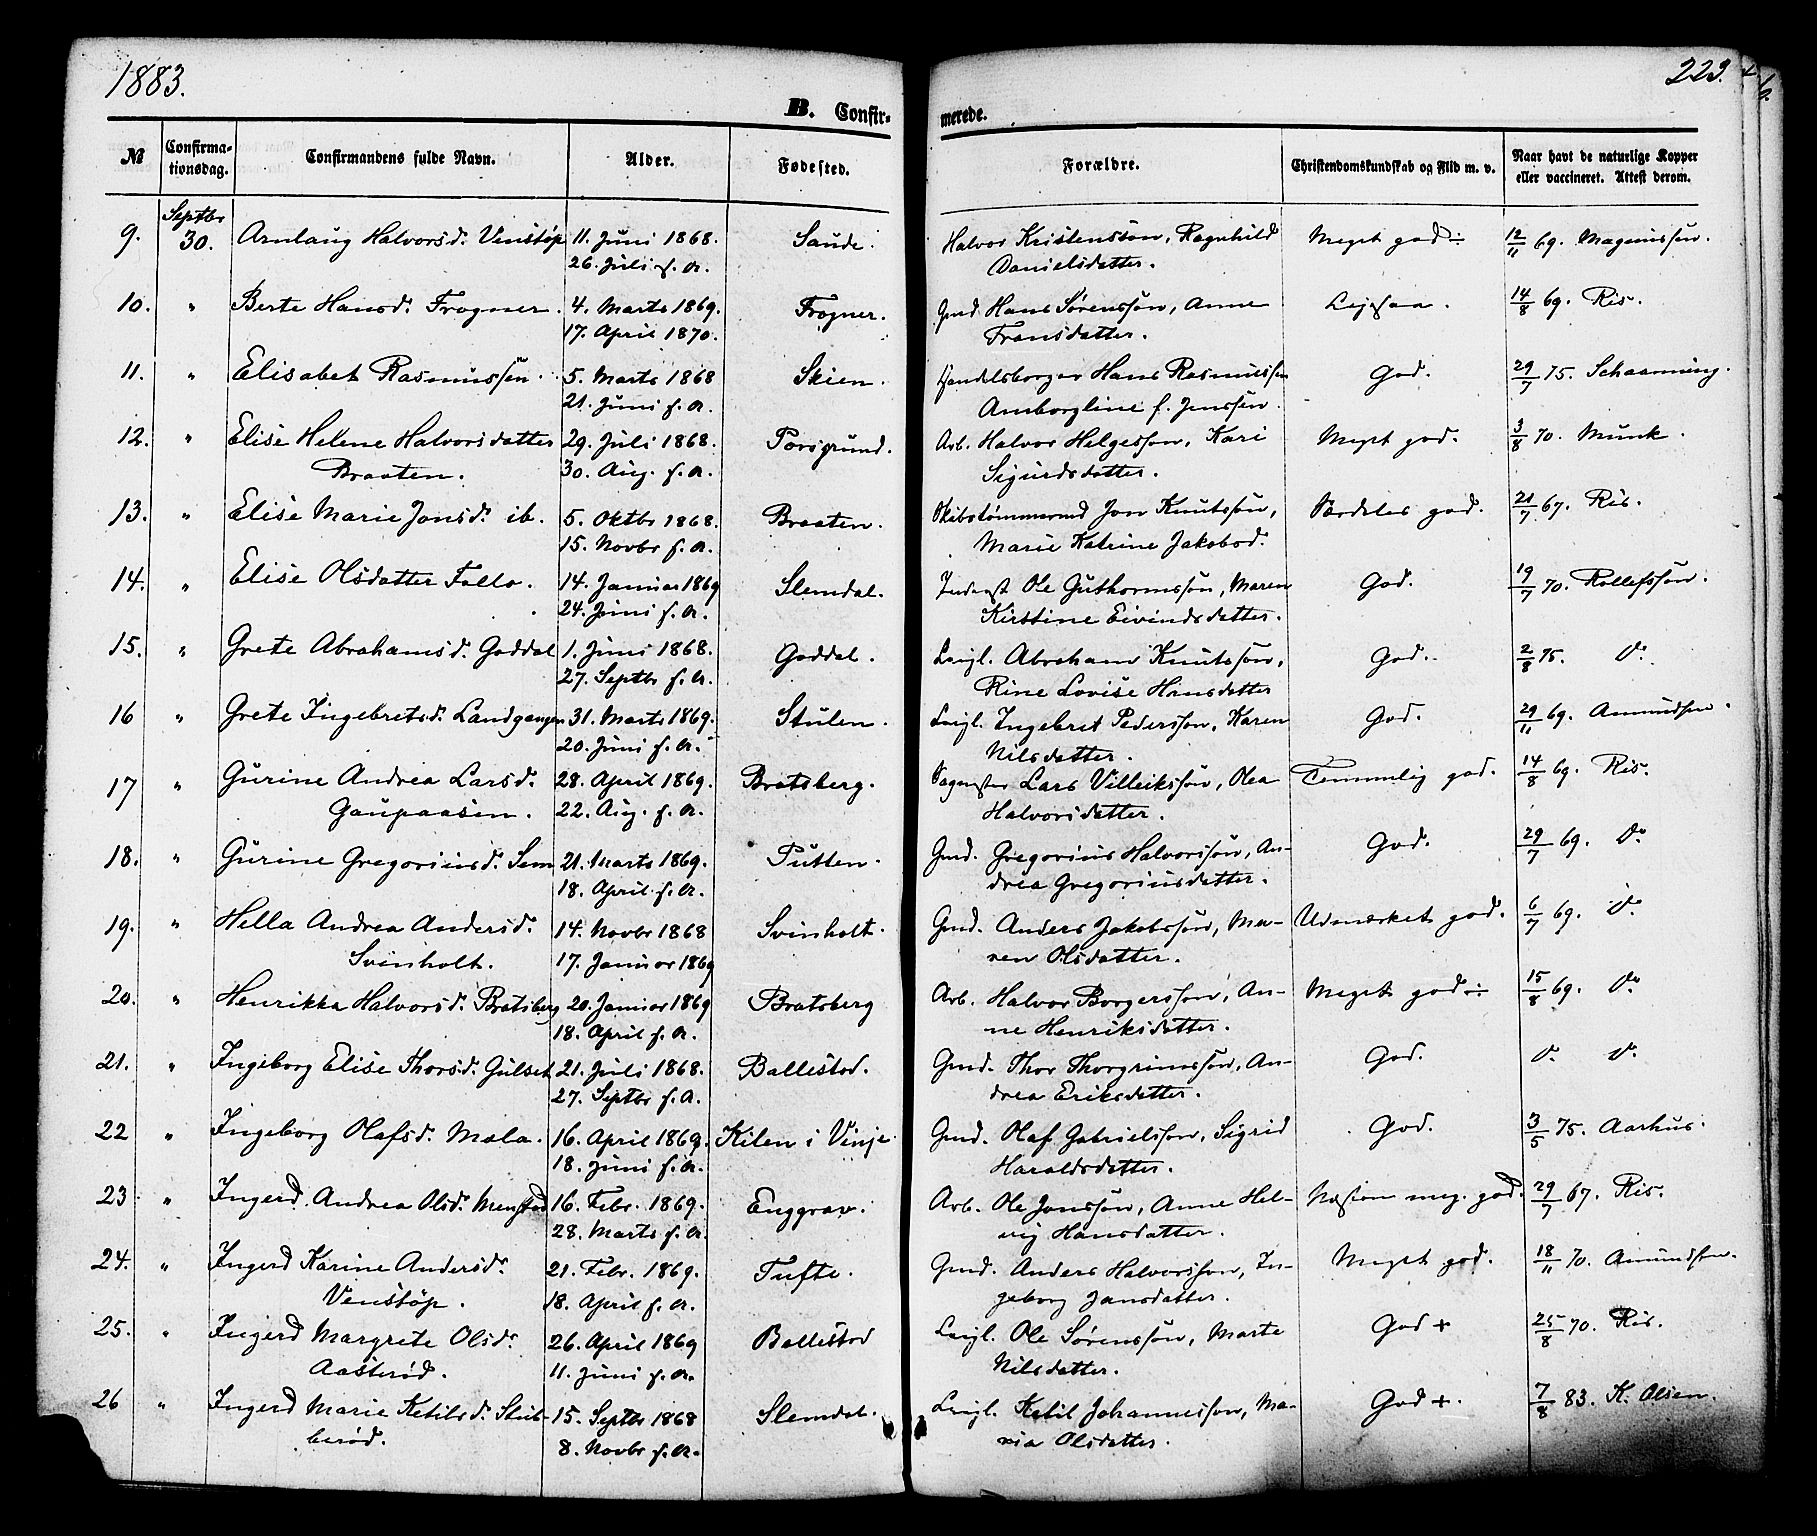 1883.
223.
B. Confir-
merede.
№
Confirma-
tionsdag.
Confirmandens fulde Navn.
Alder.
Fødested.
Forældre.
Christendomskundskab og Flid m. v.
Naar havt de naturlige Kopper
eller vaccineret. Attest derom.
9. Septbr 30. Arnlaug Halvorsd. Venstøp 11. Juni 1868. Saude. Halvor Kristensson, Ragnhild Meget god ÷ 12/11 69. Magnussen.
26. Juli s. A. Danielsdatter.
10. " Berte Hansd. Frogner. 4. Marts 1869. Frogner. Gmd. Hans Sørensson, Anne 14/8 69. Ris.
17. April 1870. Fransdatter.
11. " Elisabet Rasmussen. 5. Marts 1868 Skien. Handelsborger Hans Rasmussen God. 29/7 75. Schaanning.
21. Juni s. A. Amborgline f. Jenssen.
12. " Elise Helene Halvorsdatter 29. Juli 1868. Porsgrund. Arb. Halvor Helgesson, Kari Meget god. 3/8 70. Munk.
Braaten. 30. Aug. s. A. Sigurdsdatter.
13. " Elise Marie Jonsd. ib. 5. Oktbr 1868. Braaten. Skibstømmermd Jon Knutsson, Særdeles god. 21/7 67. Ris.
15. Novbr s. A. Marie Katrine Jakobsd.
14. " Elise Olsdatter Follo. 14. Januar 1869 Slemdal. Inderst Ole Guthormsson, Maren God. 19/7 70. Rollefsson.
24. Juni s. A. Kirstine Eivindsdatter.
15. " Grete Abrahamsd. Goddal 1. Juni 1868. Goddal. Leigl. Abraham Knutsson, God. 2/8 75. Do
27. Septbr s. A. Rine Lovise Hansdatter
16 " Grete Ingebretsd. Landgangen 31. Marts 1869. Stulen. Leigl. Ingebret Pedersson, Karen God. 29/11 69. Amundsen.
20. Juni s. A. Nilsdatter.
17 " Gurine Andrea Larsd. 28. April 1869. Bratsberg. Lars Villeiksson, Olea Temmelig god. 14/8 69. Ris.
Gaupaasen. 22. Aug. s. A. Halvorsdatter.
18. " Gurine Gregoriusd. Sem 21. Marts 1869. Putten. Gmd. Gregorius Halvorsson, An- God. 29/7 69. Do
18. April s. A. drea Gregoriusdatter.
19. " Hella Andrea Andersd. 14. Novbr 1868 Svinholt. Gmd. Anders Jakobsson, Ma- Udmærket god. 6/7 69. Do
Svinholt. 17. Januar 1869 ren Olsdatter.
20. " Henrikka Halvorsd. Bratsberg 20. Januar 1869 Bratsberg Arb. Halvor Borgersson, An- Meget god ÷ 15/8 69. Do
18. April s. A. ne Henriksdatter.
21. " Ingeborg Elise Thorsd. Gulset 21. Juli 1868. Ballestad. Gmd. Thor Thorgrimsson, An- God. Do Do
27. Septbr s. A. drea Eriksdatter.
22 " Ingeborg Olafsd. Mæla. 16. April 1869. Kilen i Vinje Gmd. Olaf Gabrielsson, Sigrid God. 3/5 75. Aarhus.
18. Juni s. A. Haraldsdatter.
23 " Ingerd Andrea Olsd. Menstad 16. Febr. 1869. Enggrav. Arb. Ole Jonsson, Anne Hel- Næsten meg. god. 29/7 67. Ris.
28. Marts s. A. vig Hansdatter.
24. " Ingerd Karine Andersd. 21. Febr. 1869. Tufte. Gmd. Anders Halvorsson, In- Meget god. 18/11 70. Amundsen.
Venstøp. 18. April s. A. geborg Jansdatter.
25. " Ingerd Margrete Olsd. 26. April 1869 Ballestad Leigl. Ole Sørensson, Marte God + 25/8 70. Ris.
Aasterød. 11. Juni s. A. Nilsdatter.
26 " Ingerd Marie Ketilsd. Stub- 15. Septbr 1868 Slemdal. Leigl. Ketil Johannesson, Ma- God +. 7/8 83. K. Olsen.
berød. 8. Novbr s. A. ria Olsdatter.